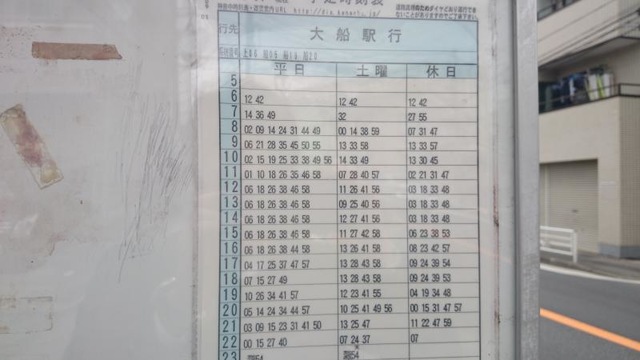 行先 大船駅行
平日 土曜 休日
5
6 12 42 12 42 12 42
7 14 36 49 32 27 55
8 02 09 14 24 31 44 49 00 14 38 59 07 31 47
9 06 21 28 35 45 50 55 13 33 58 13 33 57
10 02 15 19 25 33 38 49 56 14 33 49 13 30 45
11 01 10 18 26 35 46 58 07 28 40 57 02 21 31 47
12 06 18 26 38 46 58 11 26 41 56 03 18 33 48
13 06 18 26 38 46 58 09 25 40 56 03 18 33 48
14 06 18 26 38 46 58 12 27 41 56 03 18 33 48
15 06 18 26 38 46 58 11 27 42 58 06 23 38 53
16 06 18 26 38 44 58 13 26 41 58 08 23 42 57
17 04 17 25 37 47 57 13 28 43 58 09 24 39 54
18 07 15 27 49 13 28 43 58 09 24 39 53
19 10 26 34 41 57 12 23 41 55 04 19 34 48
20 05 14 24 34 44 57 10 25 41 49 56 00 15 31 47 57
21 03 09 15 23 31 41 50 13 25 47 11 22 47 59
22 00 15 27 40 07 24 37 07
23